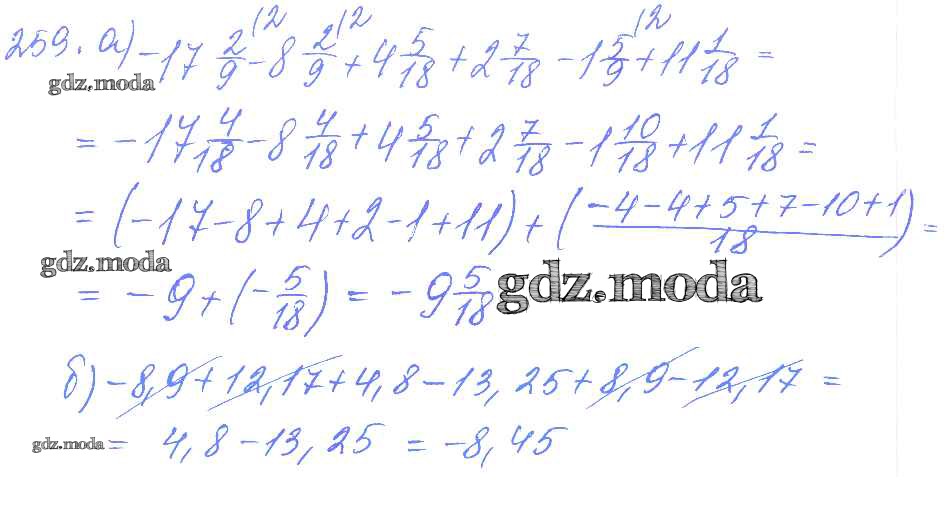 259. а) -17 2/9 (2 - 8 2/9 (2 + 4 5/18 + 2 7/18 - 1 5/9 (2 + 11 1/18 =
gdz.moda
= -17 4/18 - 8 4/18 + 4 5/18 + 2 7/18 - 1 10/18 + 11 1/18 =
= (-17-8+4+2-1+11) + (-4-4+5+7-10+1)/18) =
gdz.moda
= -9 + (-5/18) = -9 5/18 gdz.moda
б) -8,9+12,17+4,8-13,25+8,9-12,17 =
gdz.moda = 4,8-13,25 = -8,45